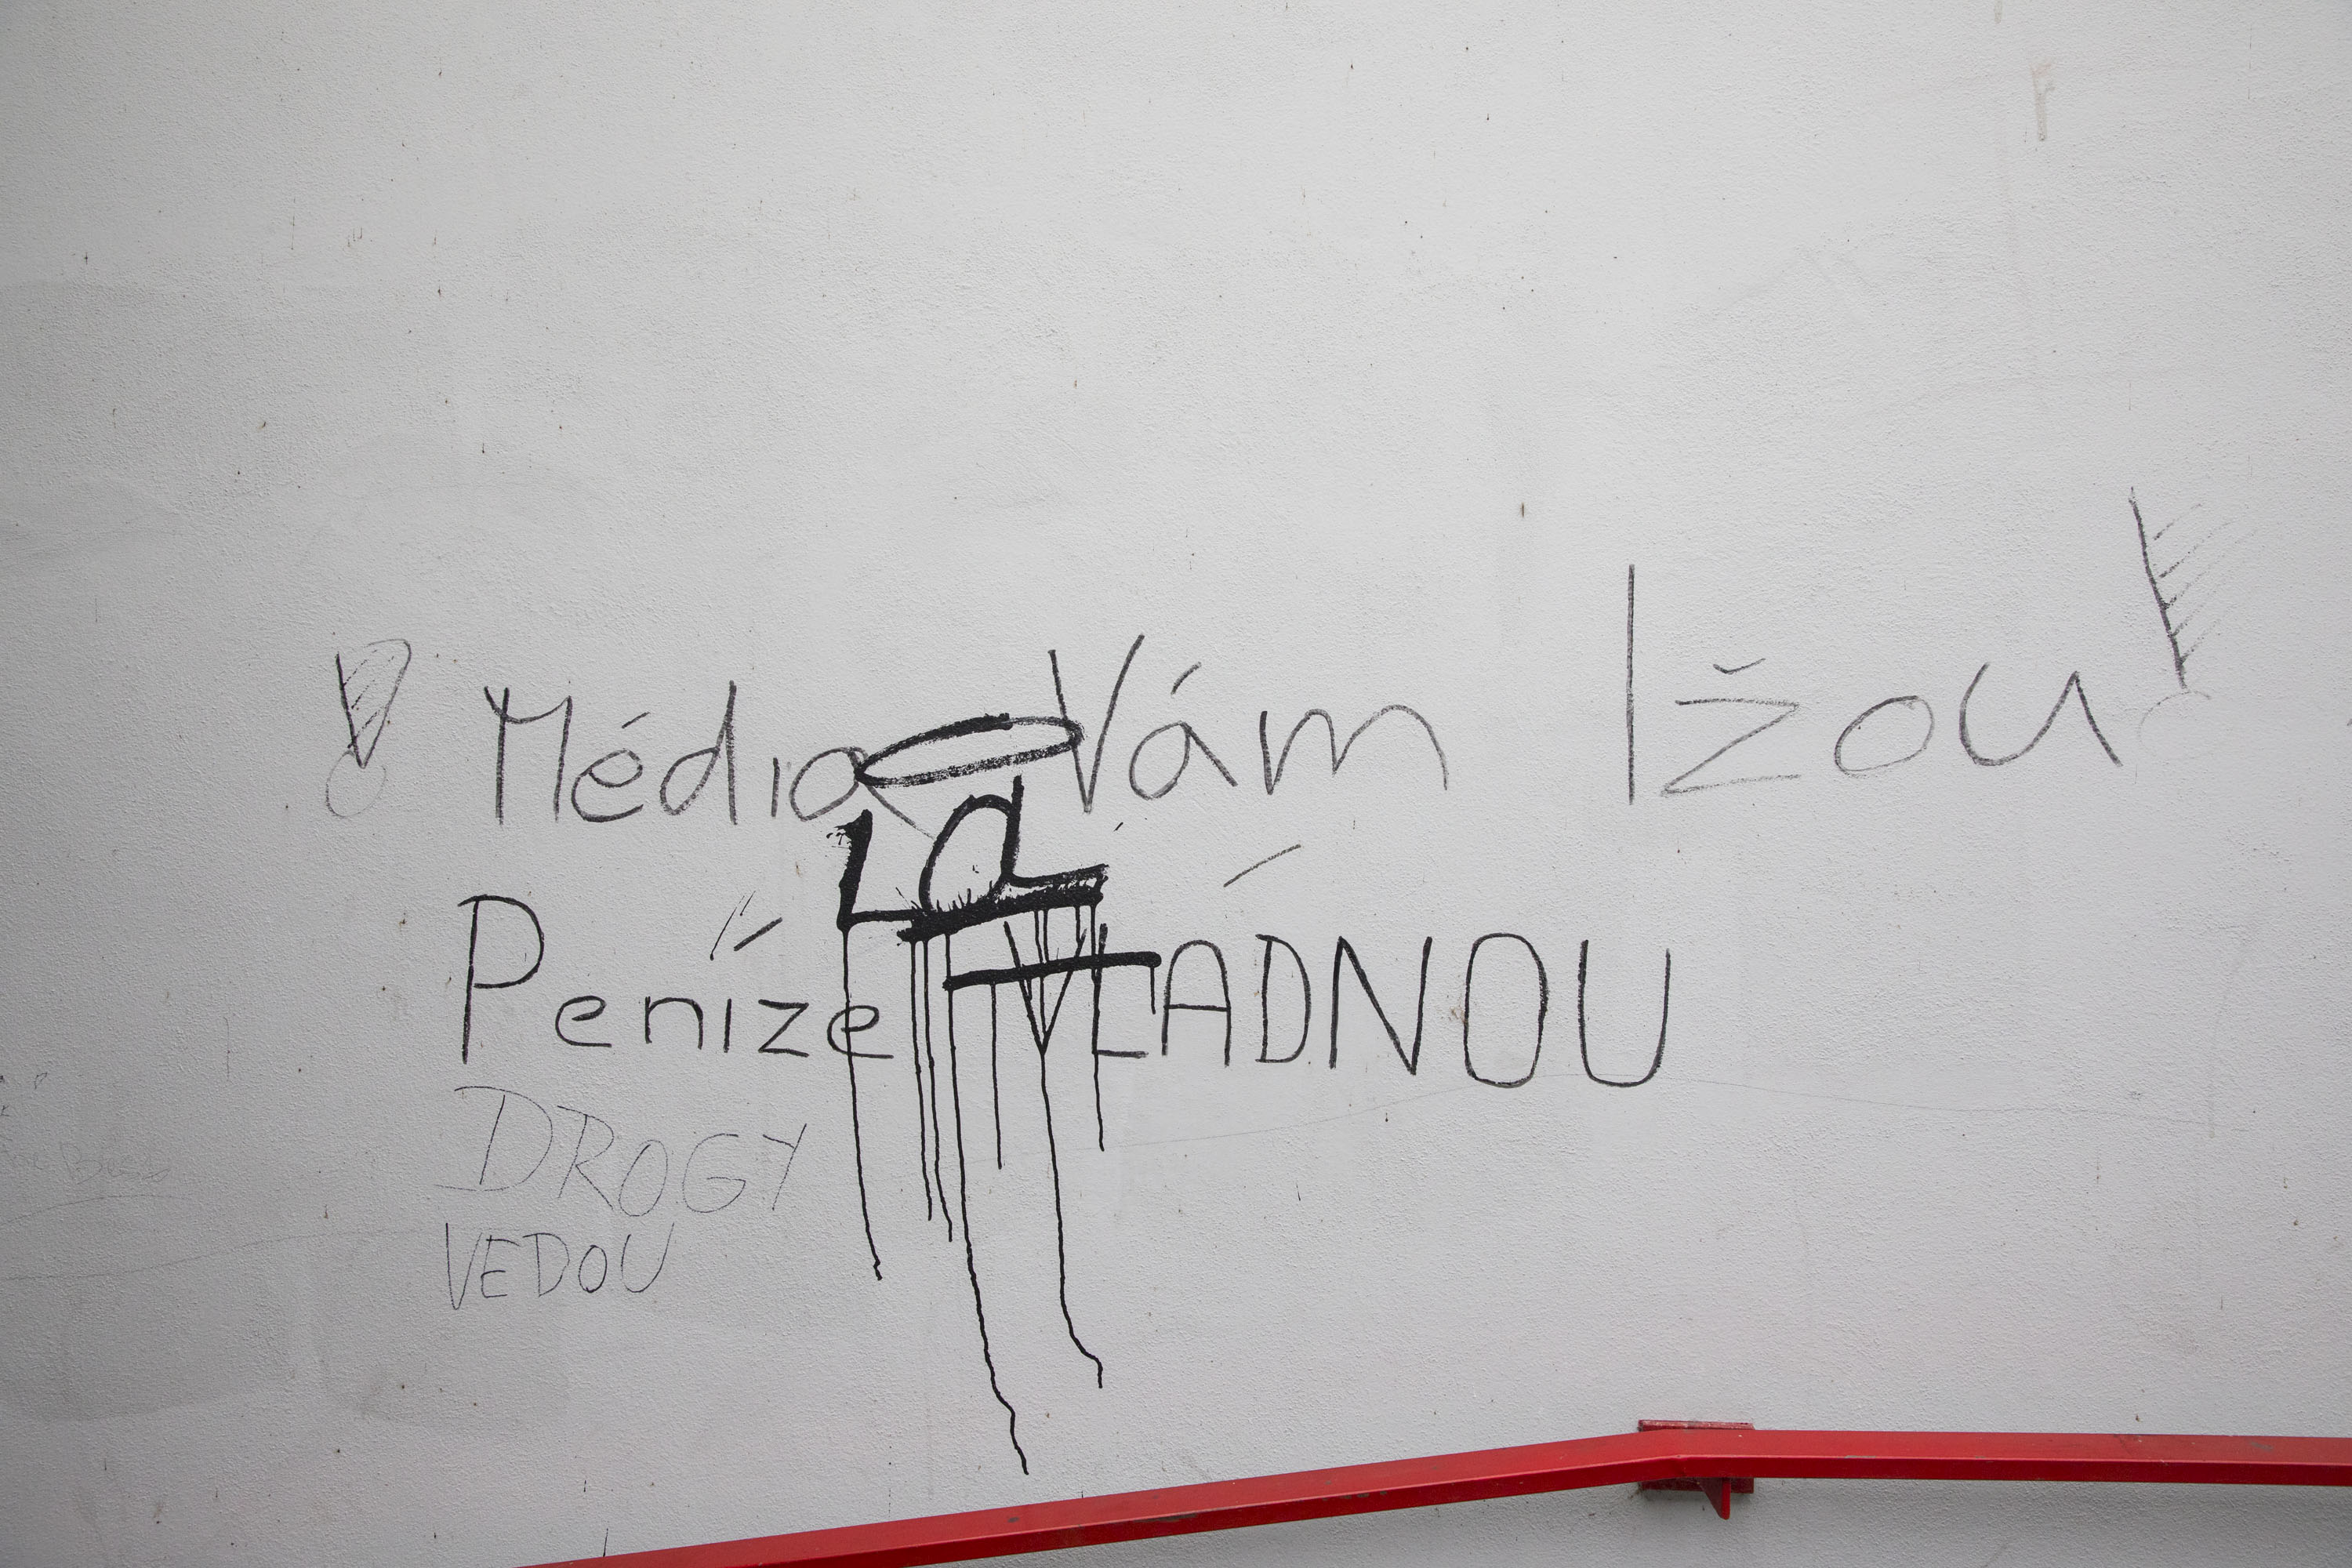 ! Média Vám lžou!
Peníze VLÁDNOU
DROGY
VEDOU